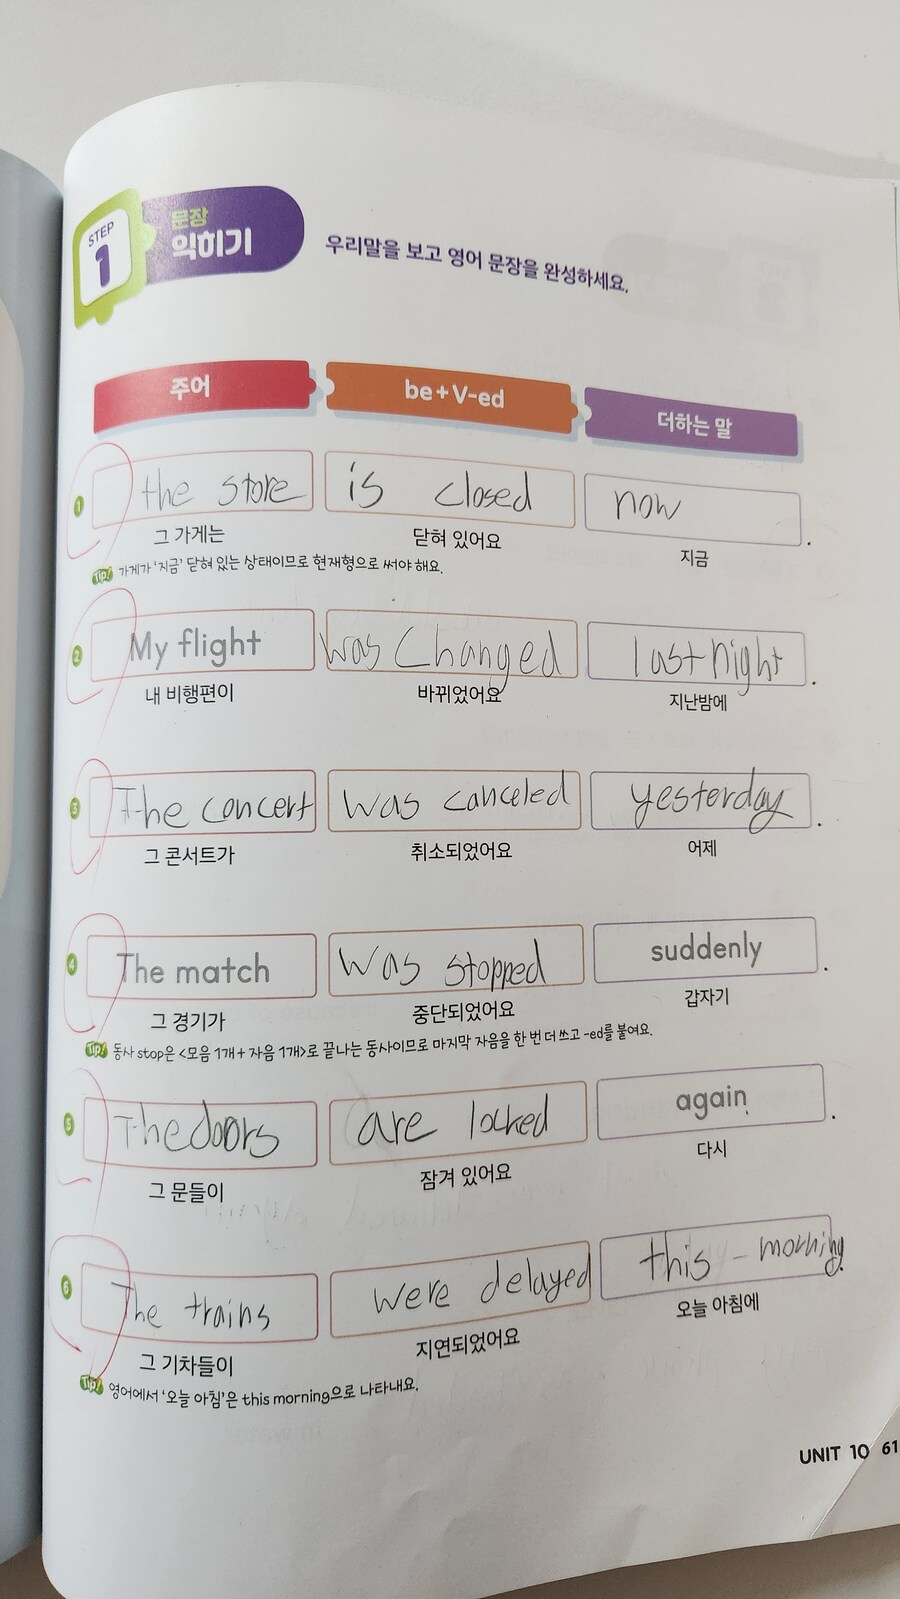 STEP 1
문장
익히기
우리말을 보고 영어 문장을 완성하세요.
주어 be+V-ed 더하는 말
1 the store is closed now .
그 가게는 닫혀 있어요 지금
Tip! 가게가 '지금' 닫혀 있는 상태이므로 현재형으로 써야 해요.
2 My flight was Changed last night .
내 비행편이 바뀌었어요 지난밤에
3 The concert was canceled yesterday .
그 콘서트가 취소되었어요 어제
4 The match was stopped suddenly .
그 경기가 중단되었어요 갑자기
Tip! 동사 stop은 <모음 1개+자음 1개>로 끝나는 동사이므로 마지막 자음을 한 번 더 쓰고 -ed를 붙여요.
5 The doors are locked again .
그 문들이 잠겨 있어요 다시
6 The trains were delayed this - morning .
그 기차들이 지연되었어요 오늘 아침에
Tip! 영어에서 '오늘 아침'은 this morning으로 나타내요.
UNIT 10 61